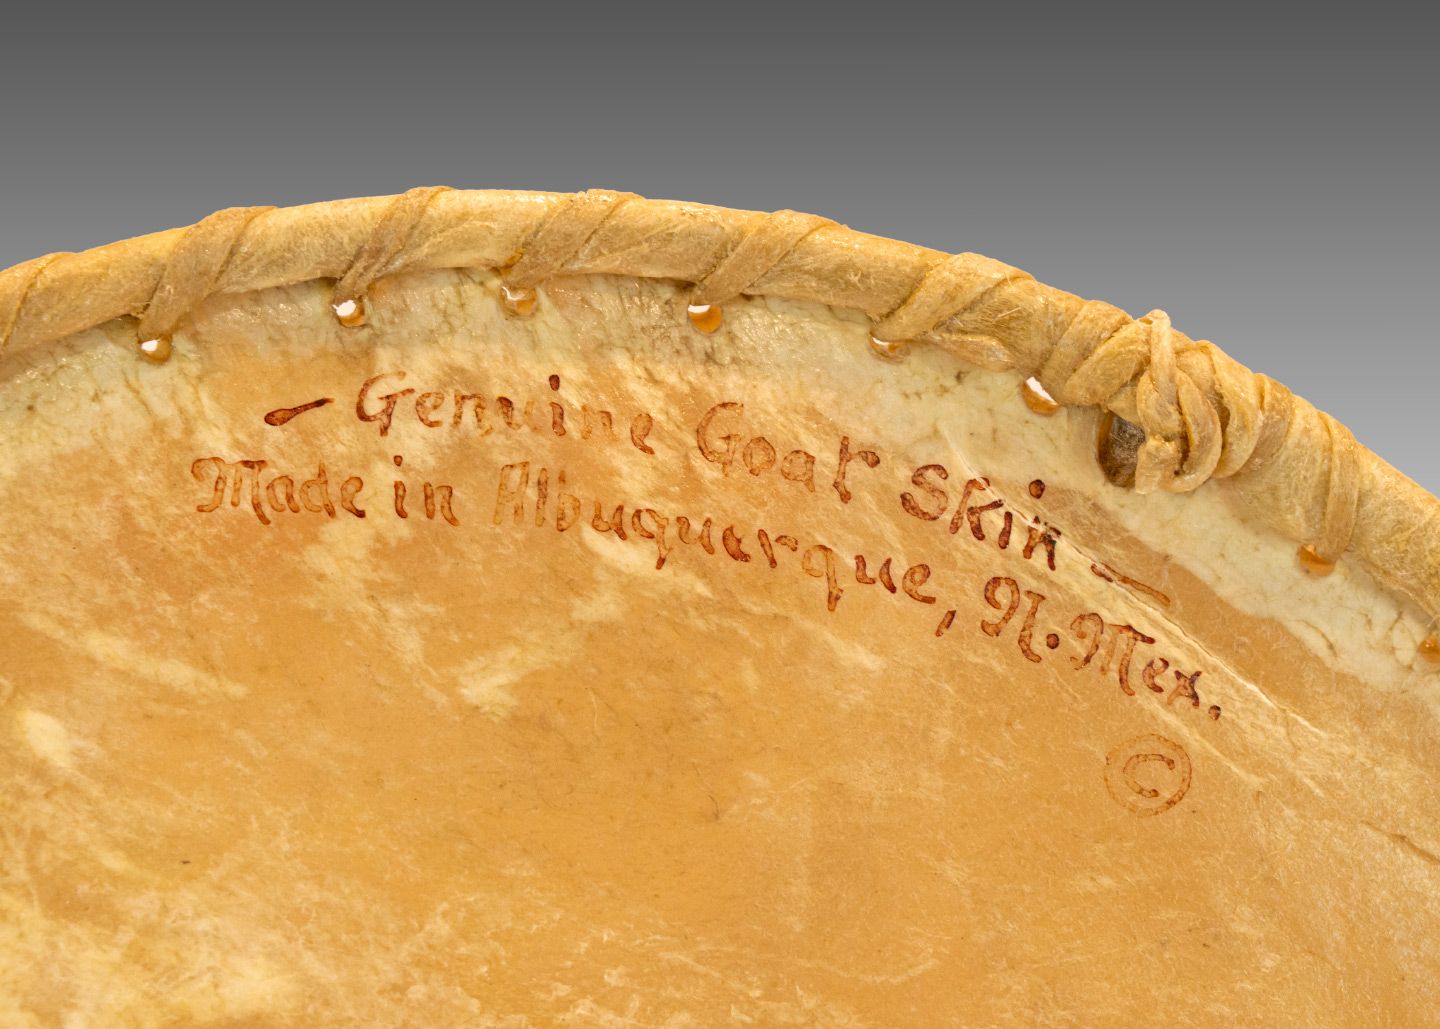 — Genuine Goat Skin —
Made in Albuquerque, N. Mex.
©